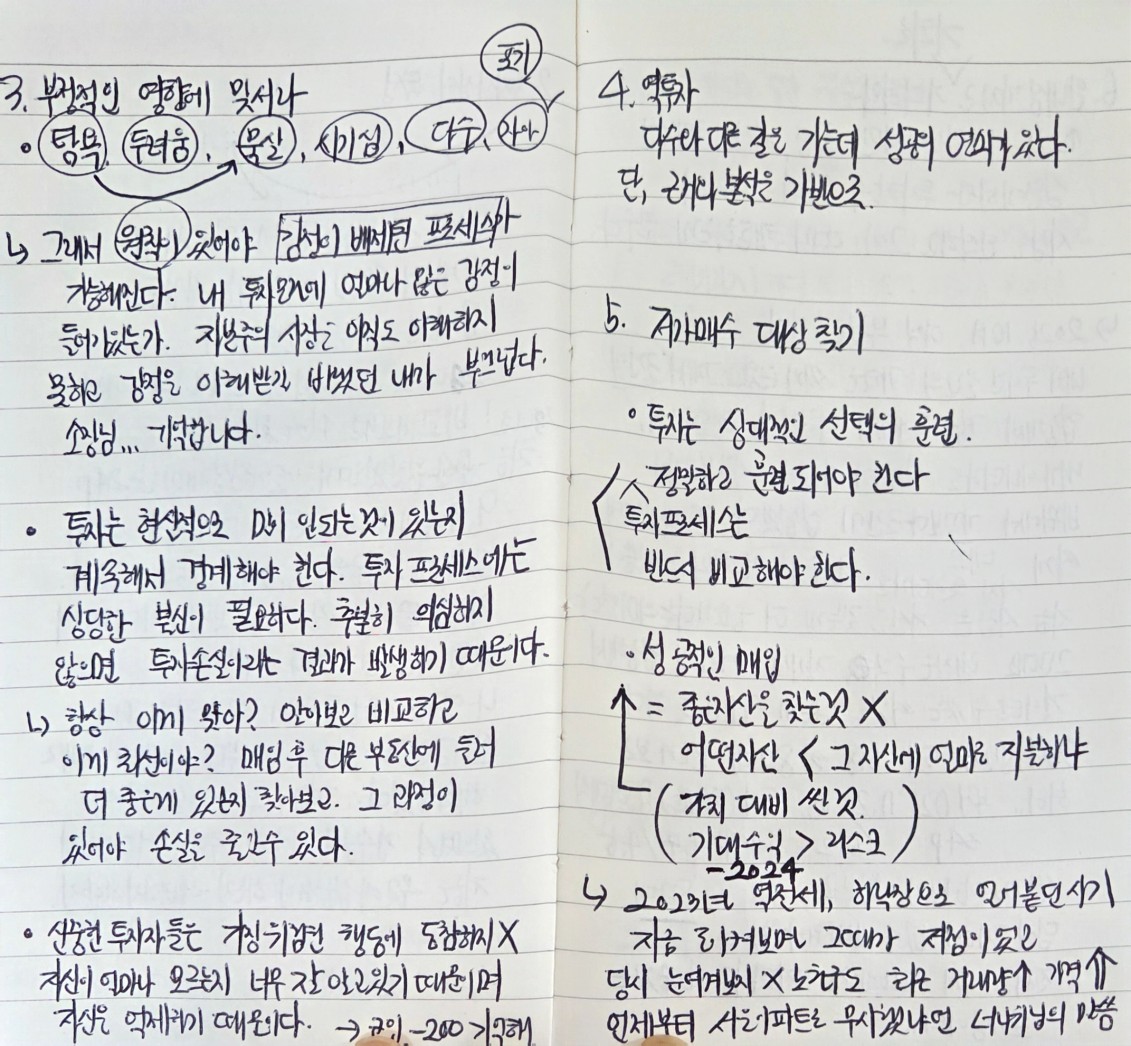 3. 부정적인 영향에 맞서라
포기
• 탐욕, 두려움, 묵살, 시기심, 다수, 자아
↳ 그래서 원칙이 있어야 감정이 배제된 프로세스가
가능해진다. 내 투자원칙에 얼마나 많은 감정이
들어가있는가. 자본주의 시장을 아직도 이해하지
못하고 감정은 이해받기 바빴던 내가 부끄럽다.
소장님... 기억합니다.
• 투자는 현실적으로 말이 안되는것이 있는지
계속해서 경계해야 한다. 투자 프로세스에는
상당한 불신이 필요하다. 충분히 의심하지
않으면 투자손실이라는 결과가 발생하기 때문이다.
↳ 항상 이게 맞아? 알아보고 비교하고
이게 최선이야? 매임 후 다른 부동산에 들러
더 좋은게 있는지 찾아보고. 그 과정이
있어야 손실을 줄일수 있다.
• 신중한 투자자들은 거짓위험엔 행동에 동참하지 X
자신이 얼마나 모르는지 너무 잘 알고있기 때문이며
자신을 억제하기 때문이다. → -200 기억해
4. 역투자
다수와 다른 길을 가는데 성공의 열쇠가 있다.
단, 근거나 분석을 기반으로.
5. 저가매수 대상 찾기
• 투자는 상대적인 선택의 훈련.
정밀하고 훈련되어야 한다
투자프로세스는
반드시 비교해야 한다.
• 성공적인 매입
= 좋은자산을 찾는것 X
어떤자산 < 그 자산에 얼마를 지불하냐
( 가치 대비 싼 것.
기대수익 > 리스크 )
-2024
↳ 2023년 역전세, 하락장으로 얼어붙던시기
지금 돌이켜보면 그때가 저점이었고
당시 눈여겨보지 X 거래량↑ 가격⇑
언제부터 서울아파트를 무시했냐던 너나위님의 말씀